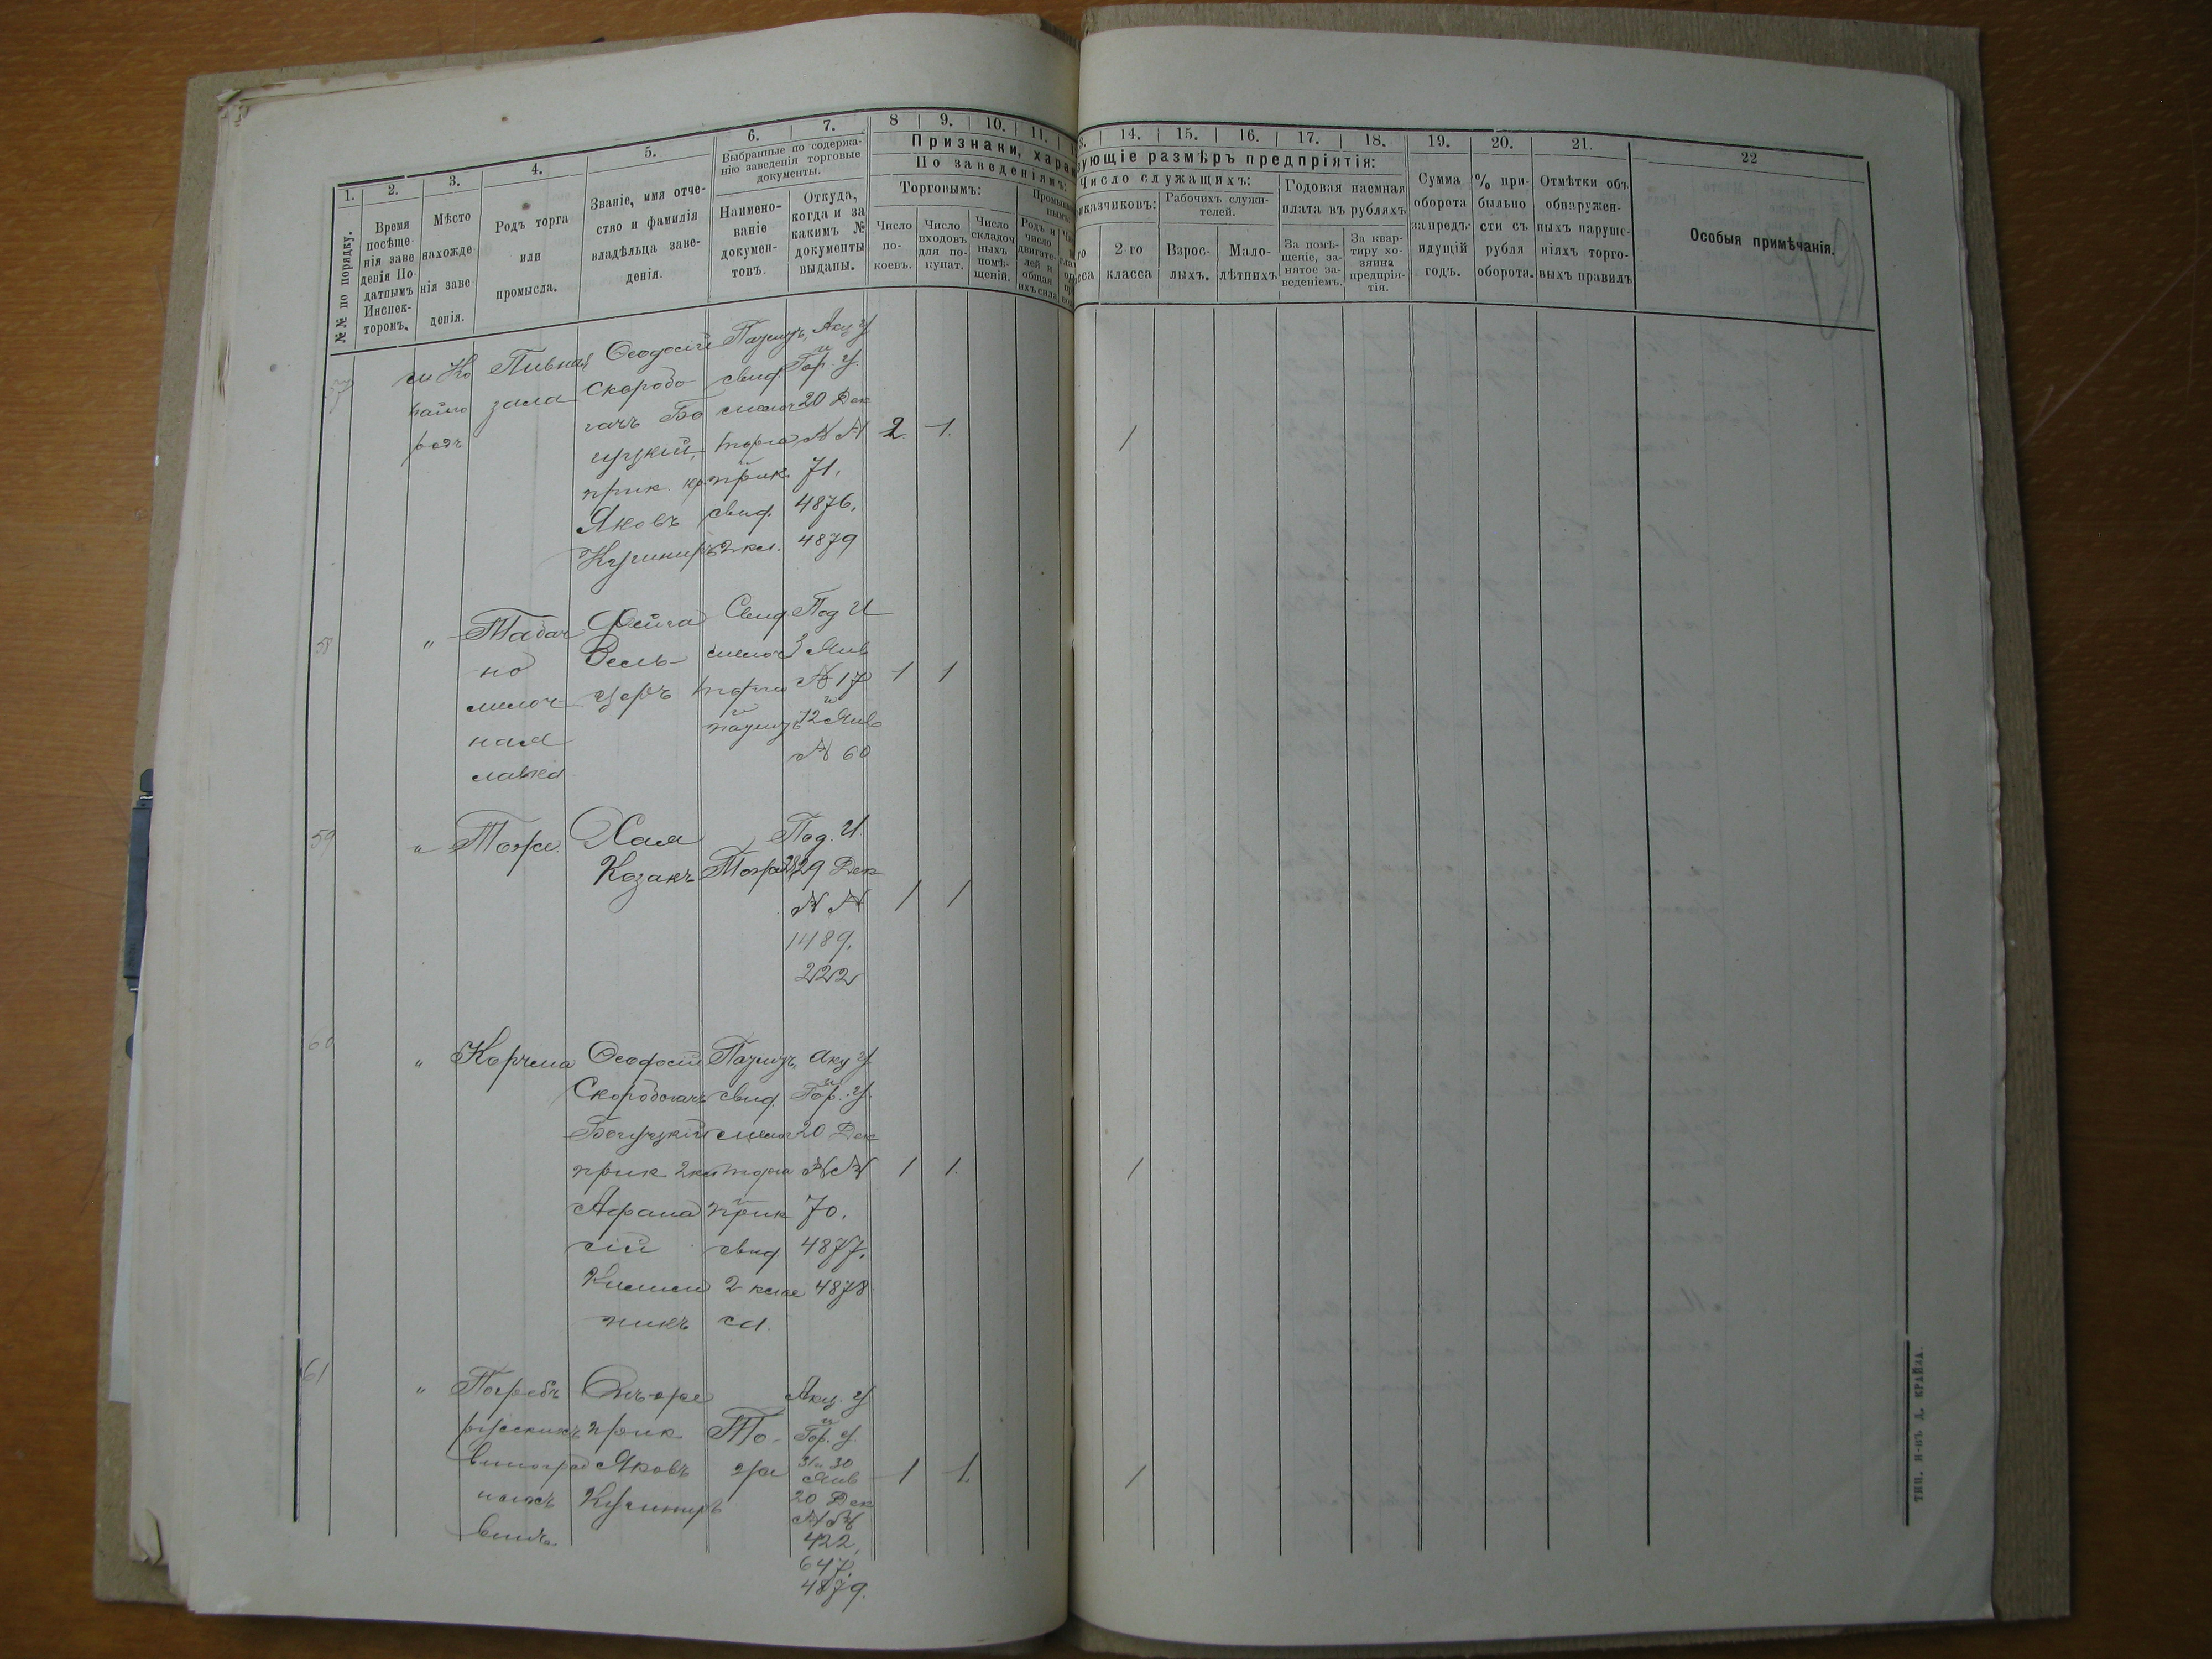 1.
2.
3.
4.
5.
6.
7.
8
9.
10.
11.
14.
15.
16.
17.
18.
19.
20.
21.
22
№№ по порядку.
Время
посѣще-
нія заве
денія По-
датнымъ
Инспек-
торомъ.
Мѣсто
нахожде-
нія заве
денія.
Родъ торга
или
промысла.
Званіе, имя отче-
ство и фамилія
владѣльца заве-
денія.
Выбранные по содержа-
нію заведенія торговые
документы.
Наимено-
ваніе
докумен-
товъ.
Откуда,
когда и за
какимъ №
документы
выданы.
Признаки, харак
По заведеніямъ:
Торговымъ:
Число
по-
коевъ.
Число
входовъ
для по-
купат.
Число
складоч
ныхъ
помѣ-
щеній.
Родъ и
число
двигате-
лей и
общая
ихъ сила
ующіе размѣръ предпріятія:
Число служащихъ:
иказчиковъ:
2-го
класса
Рабочихъ служи-
телей.
Взрос-
лыхъ.
Мало-
лѣтнихъ
Годовая наемная
плата въ рубляхъ
За помѣ-
щеніе, за-
нятое за-
веденіемъ.
За квар-
тиру хо-
зяина
предпрія-
тія.
Сумма
оборота
за предъ-
идущій
годъ.
% при-
быльно
сти съ
рубля
оборота.
Отмѣтки объ
обнаружен-
ныхъ наруше-
ніяхъ торго-
выхъ правилъ
Особыя примѣчанія.
57
Пивная
зала
Ѳеодосій
Скоробо
гачъ Бо
гуцкій,
прик. кр.
Яковъ
Кушниръ
свид.
мелоч
торга
прик
свид.
2 кл.
Акц У
и
Гор. У.
20 Дек
№ №
71,
4876,
4879
2
1
1
58
"
Табач
но
мелоч
ная
лавка
Фейга
Вель
церъ
Свид
мелоч
торга
и
Под И
3 Янв
№ 17
и
12 Янв
№ 60
1
1
59
"
Тоже
Хая
Козакъ
Тоже
Под. И.
29 Дек
№ №
1489,
222
1
1
60
"
Корчма
Ѳеодосій
Скоробогачъ
Богуцкій
прик 2 кл
Афана
сій
свид.
мелоч
торга
и
прик
свид.
2 клас
са.
Акц У.
и
Гор. У.
20 Дек
№ №
70,
4877,
4878
1
1
1
61
"
Погребъ
русскихъ
виноград
ныхъ
винъ
Онъ-же
прик
Яковъ
Кушниръ
То
же
Акц. У
и
Гор. У.
31 и 30
Янв
20 Дек
№ №
422,
647,
4879.
1
1
1
ТИП. Н-ВЪ Д. КРАЙЗА.